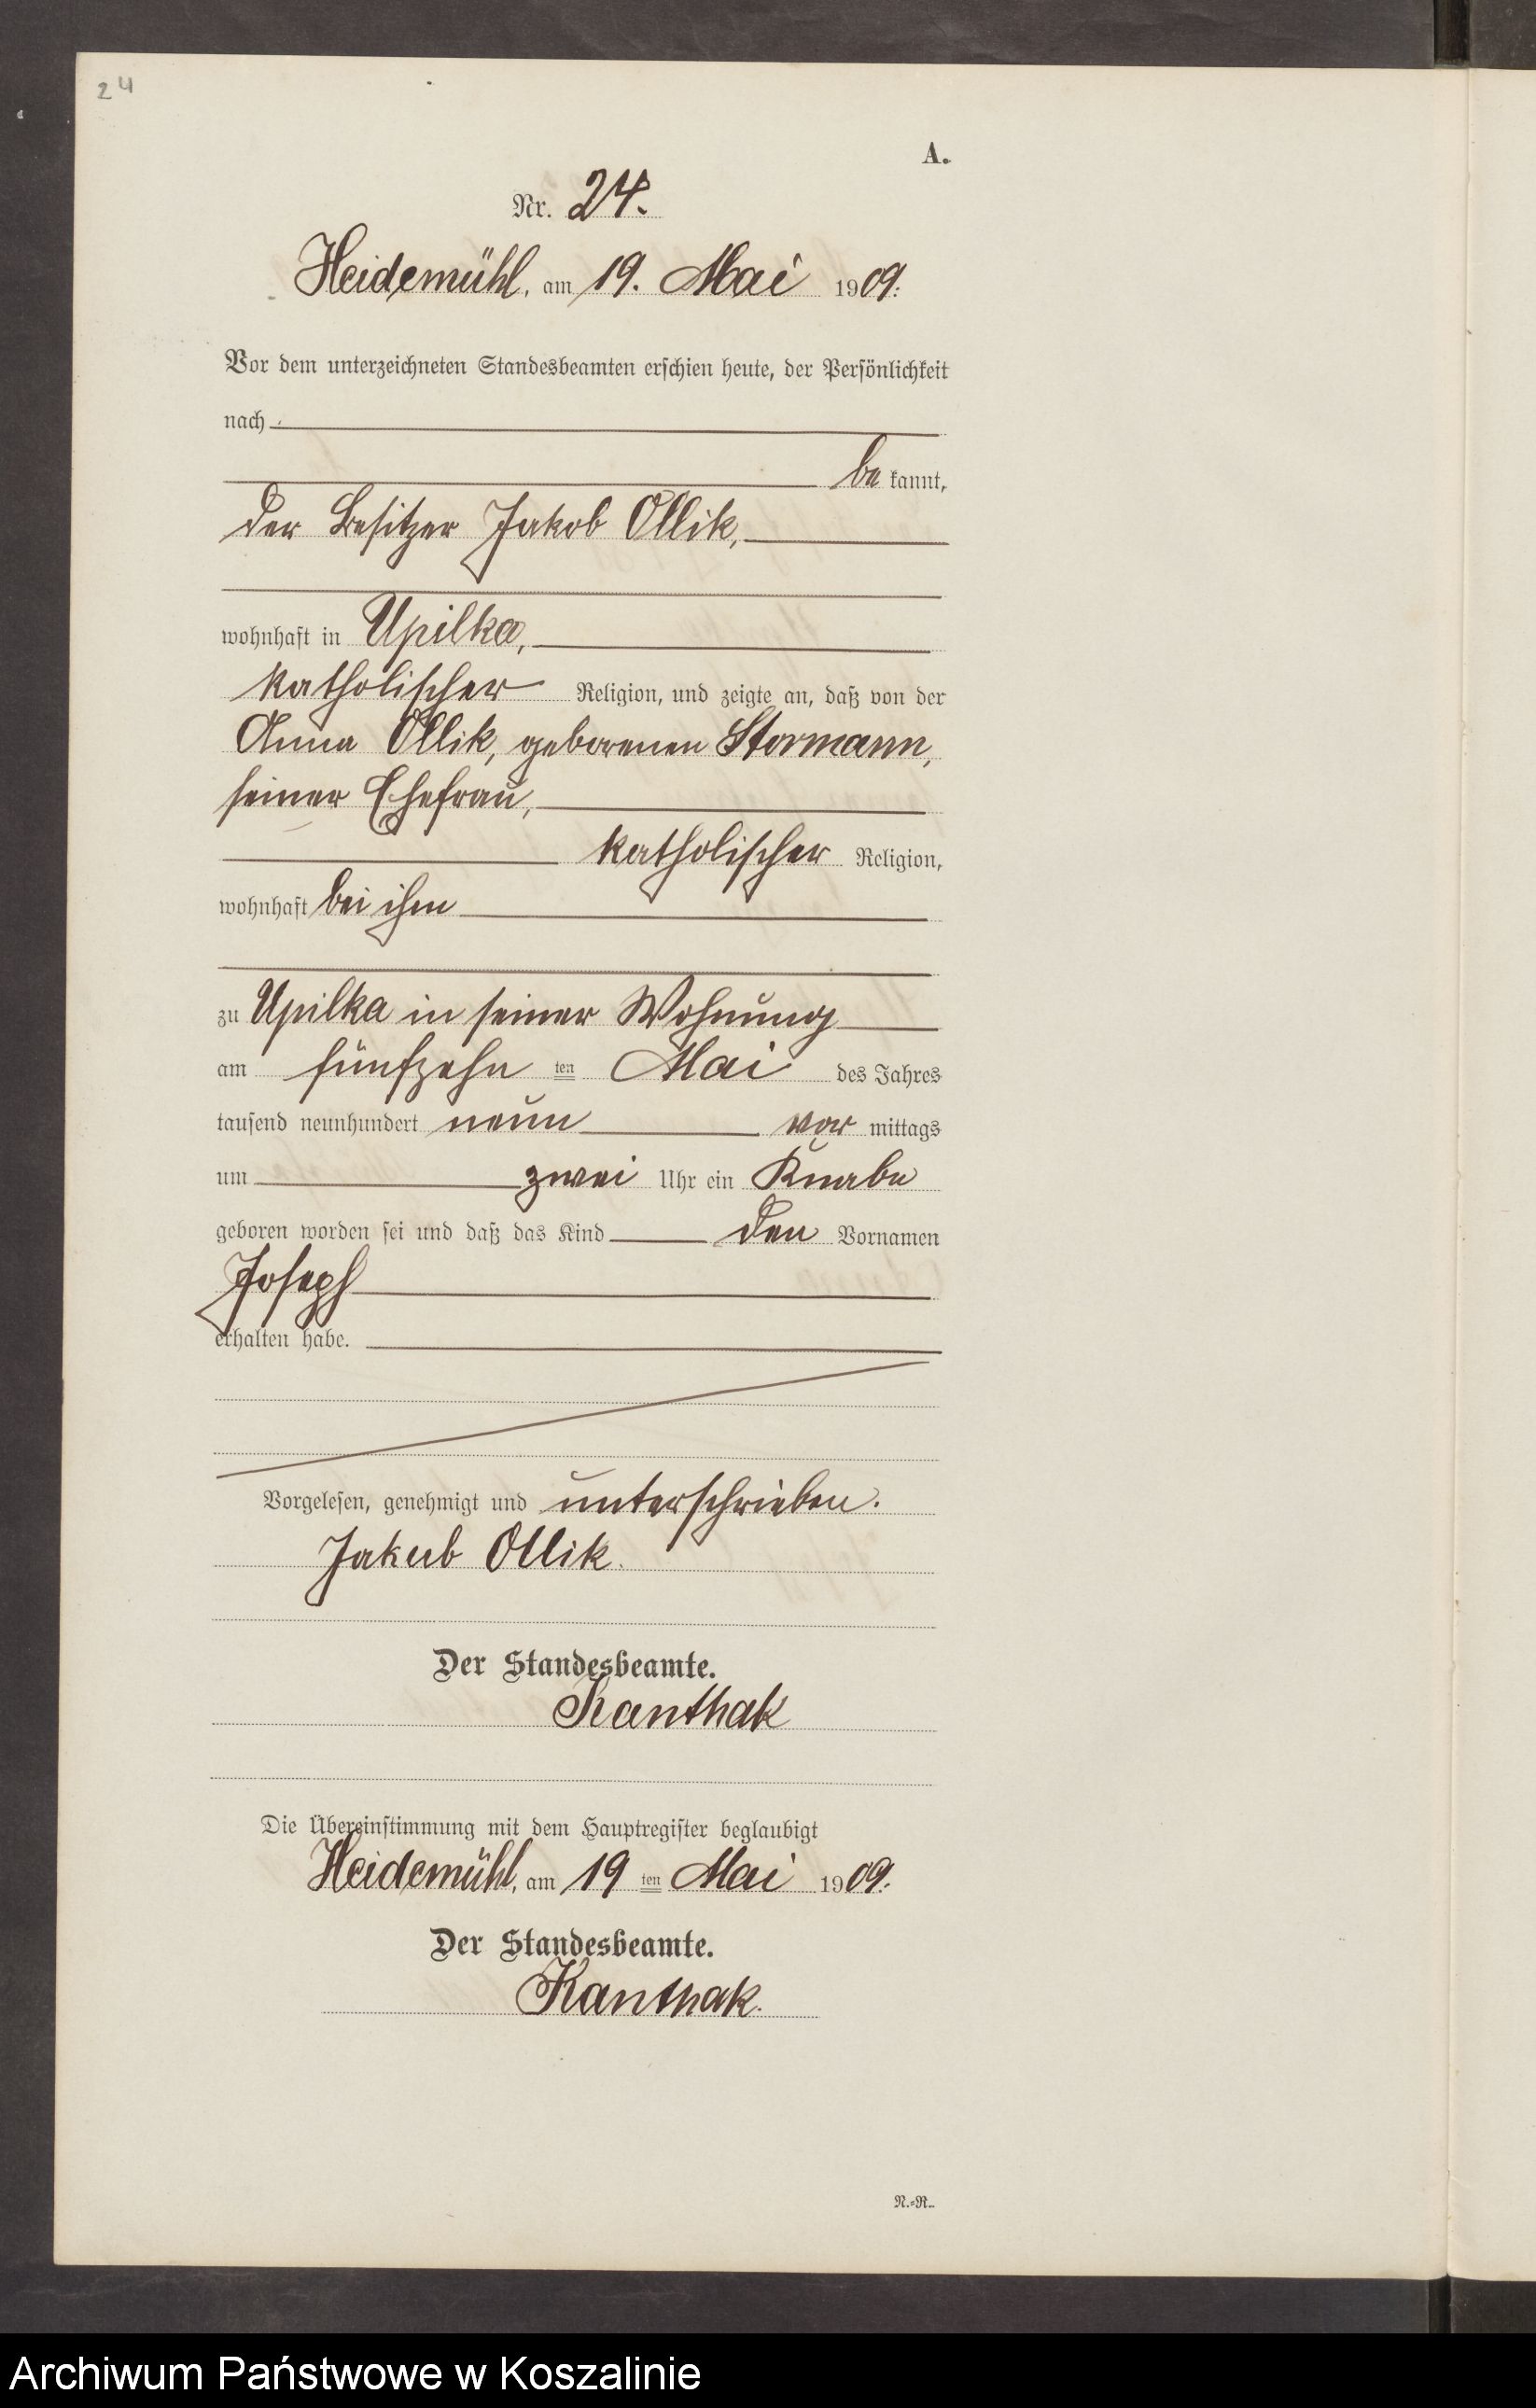 24
A.
Nr. 24.
Heidemühl, am 19. Mai 1909.
Vor dem unterzeichneten Standesbeamten erschien heute, der Persönlichkeit
nach
be kannt,
der Besitzer Jakob Ollik,
wohnhaft in Upilka,
katholischer Religion, und zeigte an, daß von der
Anna Ollik, geborenen Stormann,
seiner Ehefrau,
katholischer Religion,
wohnhaft bei ihm
zu Upilka in seiner Wohnung
am fünfzehn ten Mai des Jahres
tausend neunhundert neun vor mittags
um zwei Uhr ein Knabe
geboren worden sei und daß das Kind den Vornamen
Joseph
erhalten habe.
Vorgelesen, genehmigt und unterschrieben.
Jakub Ollik.
Der Standesbeamte.
Kanthak
Die Übereinstimmung mit dem Hauptregister beglaubigt
Heidemühl, am 19 ten Mai 1909.
Der Standesbeamte.
Kanthak.
N.=R.
Archiwum Państwowe w Koszalinie